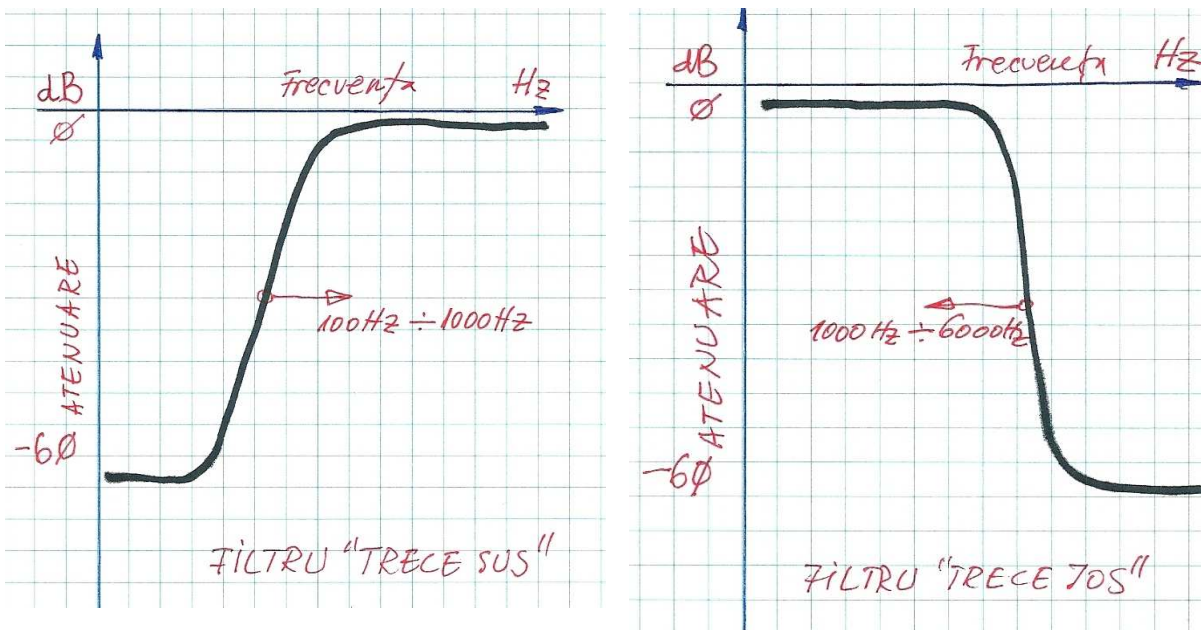 dB
Frecvenţa
Hz
Ø
ATENUARE
100Hz ÷ 1000Hz
-6Ø
FILTRU "TRECE SUS"
dB
Frecvenţa
Hz
Ø
ATENUARE
1000Hz ÷ 6000Hz
-6Ø
FILTRU "TRECE JOS"